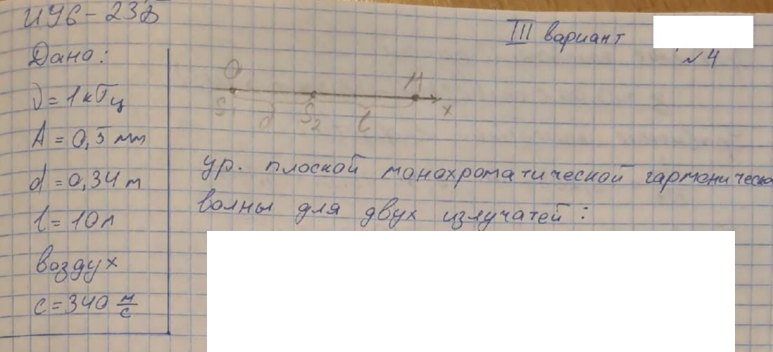 ИУ6-23Б
III вариант
№4
Дано:
ν = 1 кГц
A = 0,5 мм
d = 0,34 м
l = 10 м
воздух
c = 340 м/с
O M
S1 d S2 l x
ур. плоской монохроматической гармоническо
волны для двух излучатей: